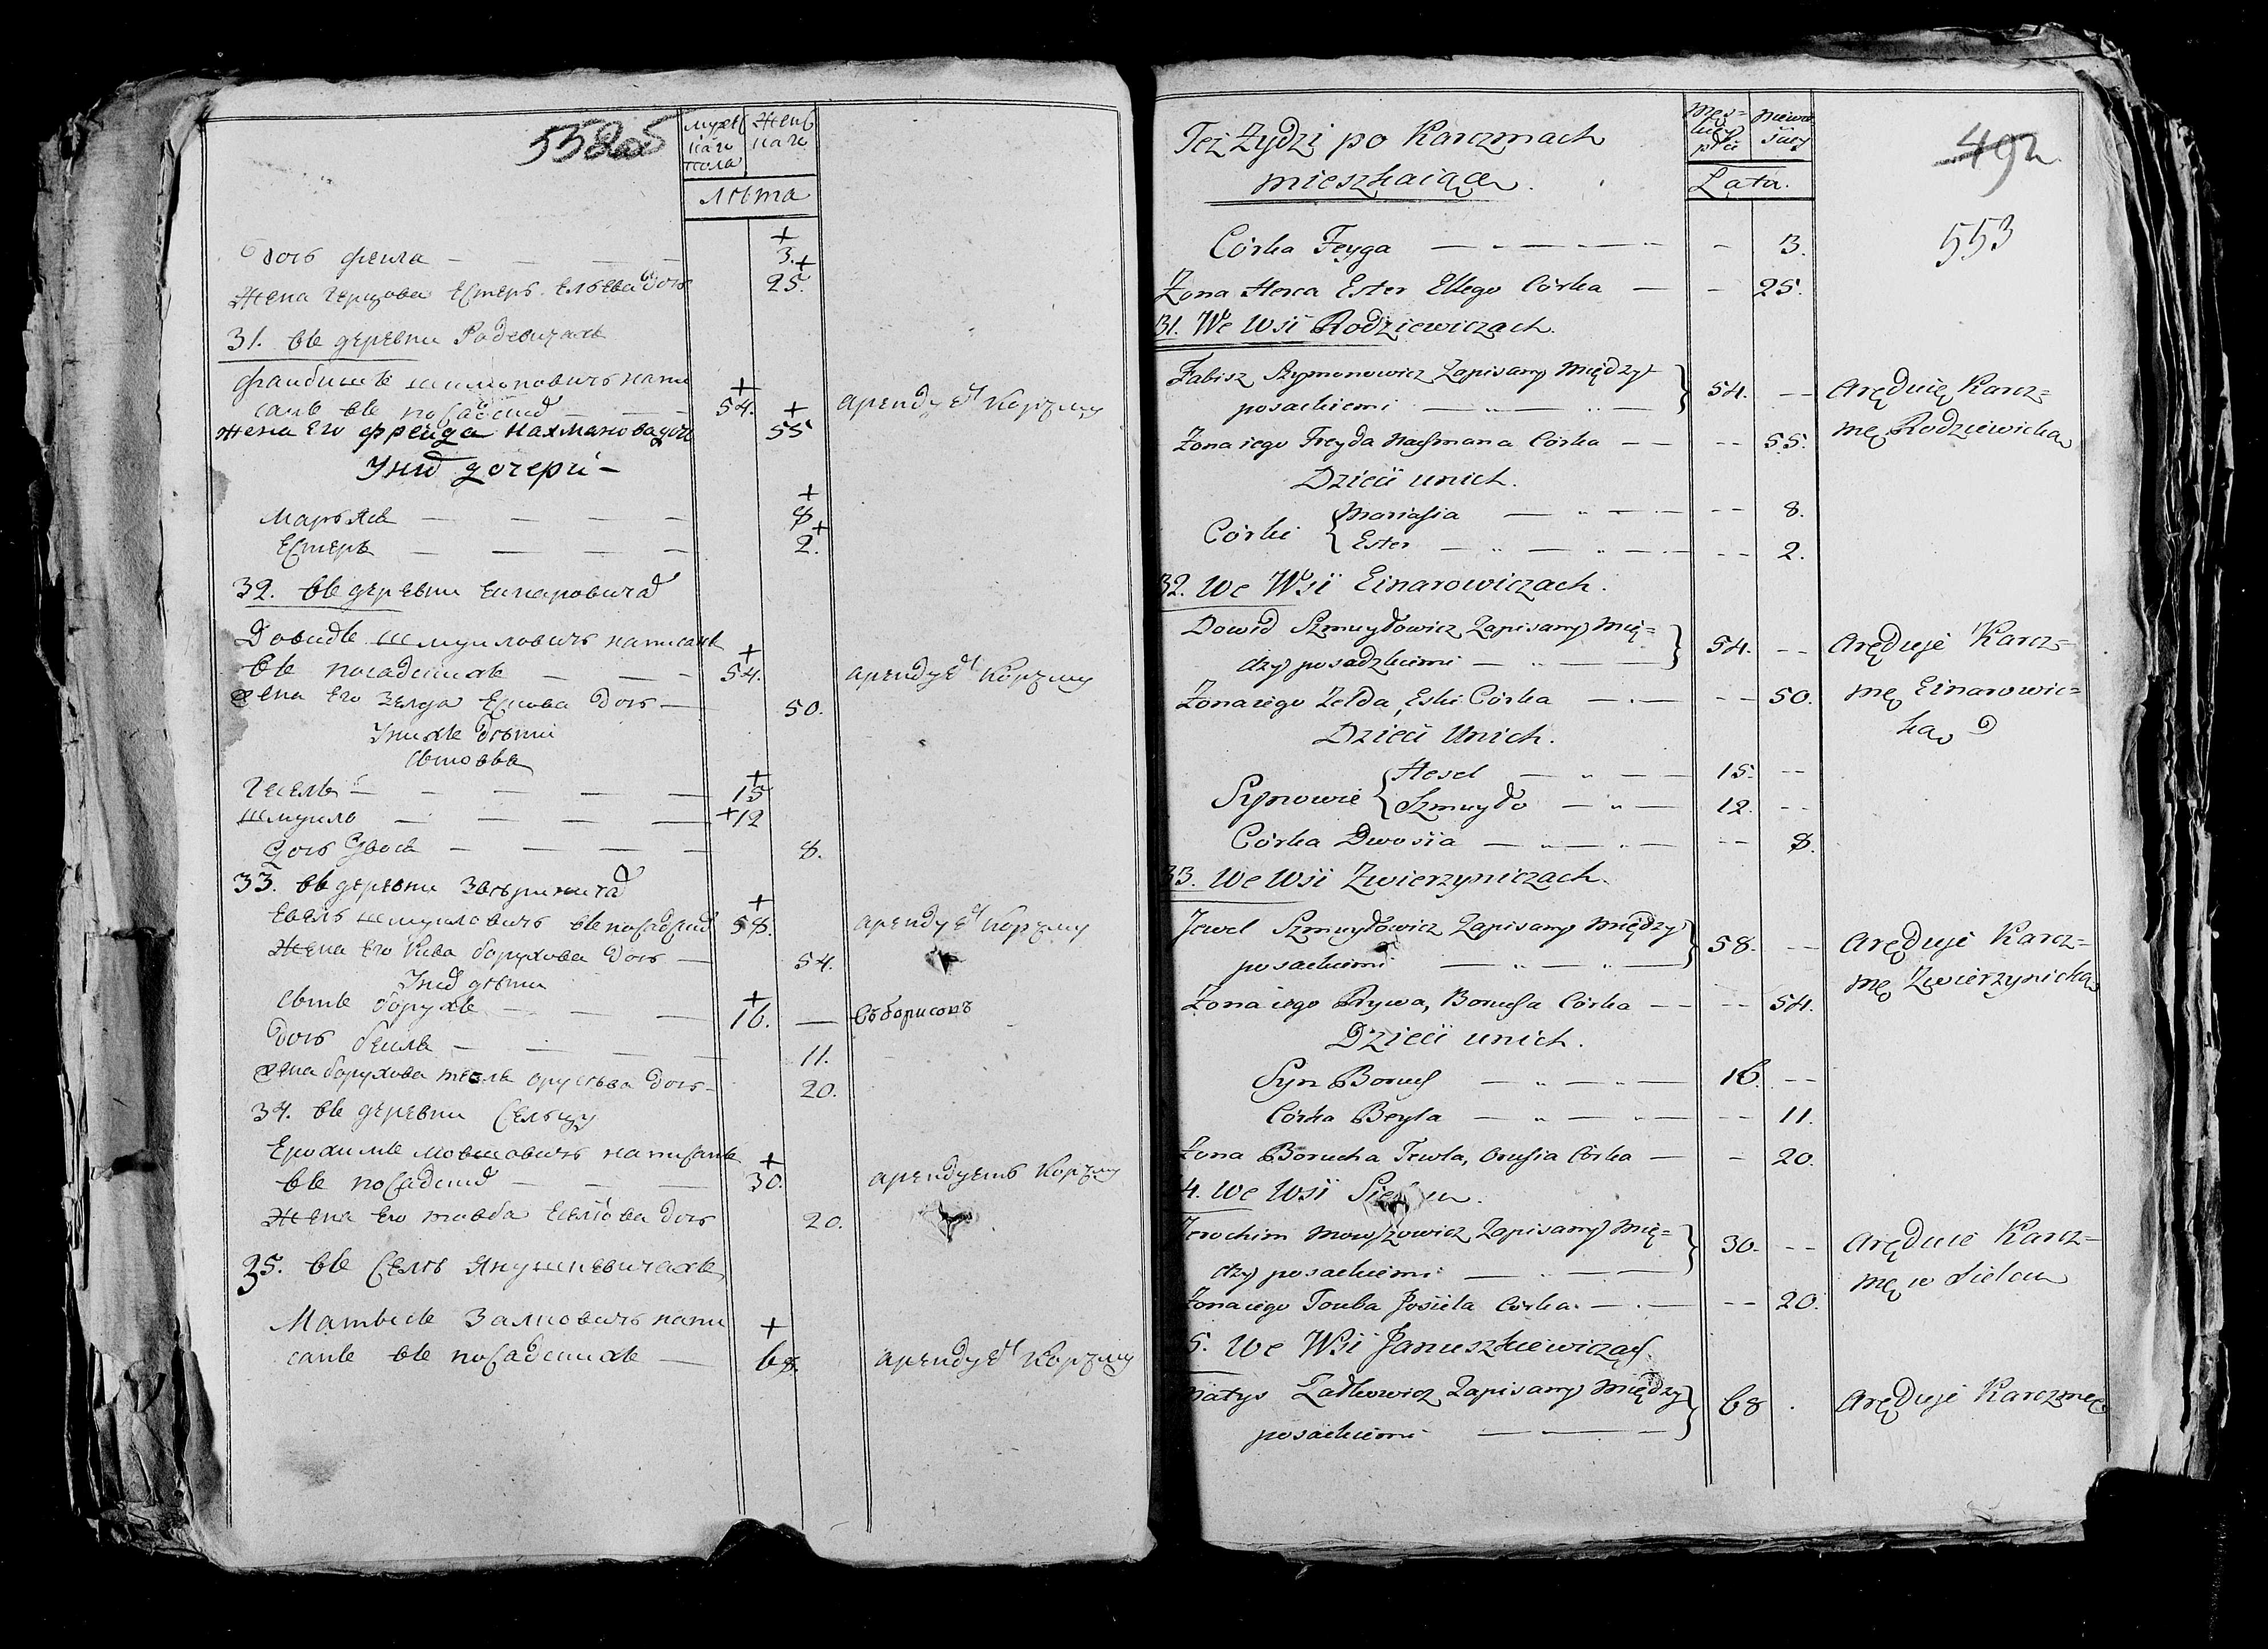 552об
мужеска
каго
пола
женс
каго
лѣта
дочь Феига — — — — 3.
жена Герцова Естерь Ельева дочь 25.
31. въ деревни Радевичахъ
Фаибишъ Шимоновичь напи
санъ въ посадскихъ — — — 54. арендуетъ корчму
жена его Фреида Нахманова дочь 55
У нихъ дочери —
Марьяся — — — — 8
Естеръ — — — — 2.
32. въ деревни Еинаровичах
Довидъ Шмуиловичь написанъ
въ посадскихъ — — — 54. арендуетъ корчму
жена его Зелда Ескова дочь — 50.
У нихъ дѣти
сыновья
Гесель — — — — — 15
Шмуило — — — — — 12
дочь Двося — — — — 8.
33. въ деревни Звѣринича
Евель Шмуиловичь въ посадских 58. арендуетъ корчму
жена его Рива Борухова дочь — 54.
У них дѣти
сынъ Борухъ — — — 16. — въ Борисовѣ
дочь Беила — — — — 11.
жена Борухова Тевля Орусьва дочь — 20.
34. въ деревни Сельцу
Ерохимъ Мовшовичь написанъ
въ посадских — — — 30. арендуетъ корчму
жена его Товба Есѣлиова дочь 20.
35. въ селѣ Янушкевичахъ
Матысъ Залковичь напи
санъ въ посадскихъ — 68. арендуетъ корчму
Też Żydzi po Karczmach
mieszkaiące.
Męs-
kiey
płci
niewie
ściey
Lata.
492
553
Córka Feyga — — — — - 3.
Żona Herca Ester Ellego Córka — - 25.
31. We Wsi Rodziewiczach.
Fabisz Szymonowicz Zapisany między
posackiemi — — — 54. -- Aręduię Karcz=
mę Rodziewicką
Żona iego Freyda Nachmana Córka — -- 55.
Dzieci u nich.
Córki { Mariasia — — — -- 8.
Ester — — — -- 2.
32. We Wsi Einarowiczach.
Dowid Szmuyłowicz Zapisany mię=
dzy posadzkiemi — — 54. -- Aręduje Karcz=
mę Einarowic=
ką
Żona iego Zelda, Eski Córka — -- 50.
Dzieci Unich.
Synowie { Hesel — — — 15. --
Szmuyło — — 12. --
Córka Dwosia — — — -- 8.
33. We Wsi Zwierzyniczach.
Jewel Szmuyłowicz Zapisany między
posackiemi — — — 58. -- Aręduje Karcz=
mę Zwierzynicką
Żona iego Rywa, Borucha Córka — -- 54.
Dzieci unich.
Syn Boruch — — — 16. --
Córka Beyla — — — -- 11.
Żona Borucha Tewla, Orusia Córka — - 20.
4. We Wsi
Jerochim Mowszowicz Zapisany mię=
dzy posackiemi — — 30. -- Aręduie Karcz=
mę w Sielcu
Żona iego Touba Josiela Córka. — -- 20.
5. We Wsi Januszkiewiczach
Matys Załkowicz Zapisany między
posackiemi — — 68 . Aręduje Karczmę